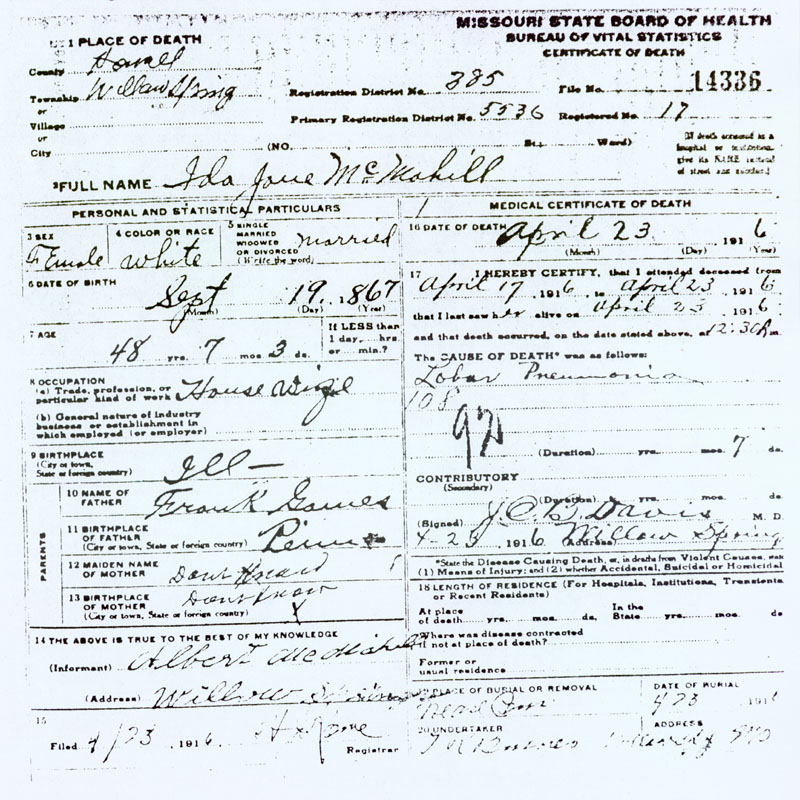 MISSOURI STATE BOARD OF HEALTH
BUREAU OF VITAL STATISTICS
CERTIFICATE OF DEATH
1 PLACE OF DEATH
County Howell
Township Willow Spring
or
Village
or
City
Registration District No. 385
File No. 14336
Primary Registration District No. 5536
Registered No. 17
(NO. St.; Ward)
(If death occurred in a
hospital or institution,
give its NAME instead
of street and number.)
2 FULL NAME Ida Jane McMahill
PERSONAL AND STATISTICAL PARTICULARS
3 SEX
Female
4 COLOR OR RACE
White
5 SINGLE
MARRIED
WIDOWED
OR DIVORCED
(Write the word)
Married
6 DATE OF BIRTH
Sept 19, 1867
(Month) (Day) (Year)
7 AGE
48 yrs. 7 mos. 3 ds.
If LESS than
1 day, hrs.
or min.?
8 OCCUPATION
(a) Trade, profession, or
particular kind of work House Wife
(b) General nature of industry
business or establishment in
which employed (or employer)
9 BIRTHPLACE
(City or town,
State or foreign country) Ill-
PARENTS
10 NAME OF
FATHER Frank
11 BIRTHPLACE
OF FATHER
(City or town, State or foreign country)
12 MAIDEN NAME
OF MOTHER Dont
13 BIRTHPLACE
OF MOTHER
(City or town, State or foreign country) Dont Know
14 THE ABOVE IS TRUE TO THE BEST OF MY KNOWLEDGE
(Informant) Albert McMahill
(Address) Willow Springs
15
Filed 4/23, 1916
Registrar
MEDICAL CERTIFICATE OF DEATH
16 DATE OF DEATH April 23 1916
(Month) (Day) (Year)
17 I HEREBY CERTIFY, that I attended deceased from
April 17, 1916, to April 23 1916
that I last saw her alive on April 23 1916
and that death occurred, on the date stated above, at 12:30
The CAUSE OF DEATH* was as follows:
Lobar Pneumonia
108
92
(Duration) yrs. mos. 7 ds.
CONTRIBUTORY
(Secondary)
(Duration) yrs. mos. ds.
(Signed) J.C.B. Davis M.D.
4-23 1916 Address Willow Spring
*State the Disease Causing Death, or, in deaths from Violent Causes, state
(1) Means of Injury; and (2) whether Accidental, Suicidal or Homicidal
18 LENGTH OF RESIDENCE (For Hospitals, Institutions, Transients
or Recent Residents)
At place
of death yrs. mos. ds.
In the
State yrs. mos. ds.
Where was disease contracted
if not at place of death?
Former or
usual residence
PLACE OF BURIAL OR REMOVAL
DATE OF BURIAL
4/23 1916
20 UNDERTAKER
ADDRESS